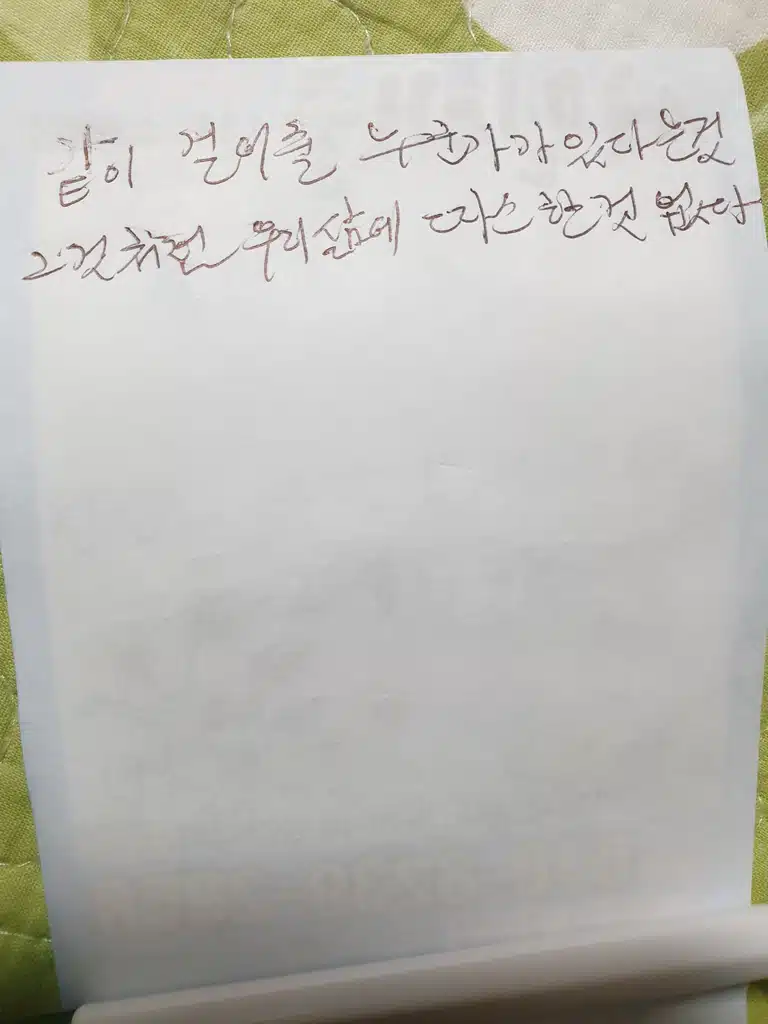 같이 걸어줄 누군가가 있다는것
그것처럼 우리 삶에 따스한것 없다